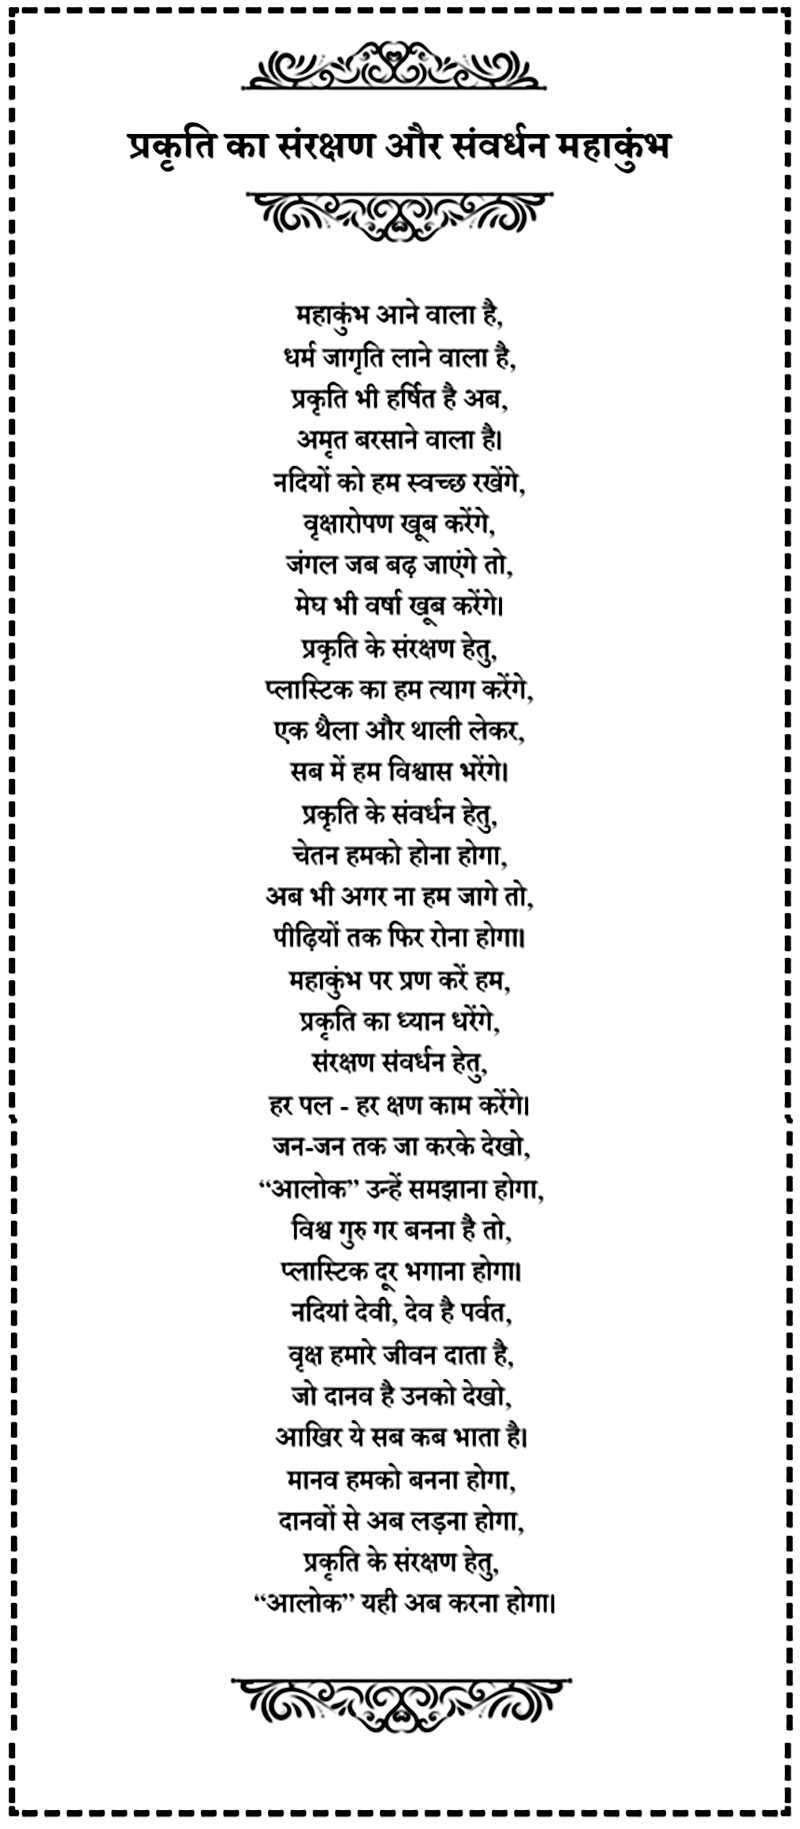 प्रकृति का संरक्षण और संवर्धन महाकुंभ
महाकुंभ आने वाला है,
धर्म जागृति लाने वाला है,
प्रकृति भी हर्षित है अब,
अमृत बरसाने वाला है।
नदियों को हम स्वच्छ रखेंगे,
वृक्षारोपण खूब करेंगे,
जंगल जब बढ़ जाएंगे तो,
मेघ भी वर्षा खूब करेंगे।
प्रकृति के संरक्षण हेतु,
प्लास्टिक का हम त्याग करेंगे,
एक थैला और थाली लेकर,
सब में हम विश्वास भरेंगे।
प्रकृति के संवर्धन हेतु,
चेतन हमको होना होगा,
अब भी अगर ना हम जागे तो,
पीढ़ियों तक फिर रोना होगा।
महाकुंभ पर प्रण करें हम,
प्रकृति का ध्यान धरेंगे,
संरक्षण संवर्धन हेतु,
हर पल - हर क्षण काम करेंगे।
जन-जन तक जा करके देखो,
“आलोक” उन्हें समझाना होगा,
विश्व गुरु गर बनना है तो,
प्लास्टिक दूर भगाना होगा।
नदियां देवी, देव है पर्वत,
वृक्ष हमारे जीवन दाता है,
जो दानव है उनको देखो,
आखिर ये सब कब भाता है।
मानव हमको बनना होगा,
दानवों से अब लड़ना होगा,
प्रकृति के संरक्षण हेतु,
“आलोक” यही अब करना होगा।